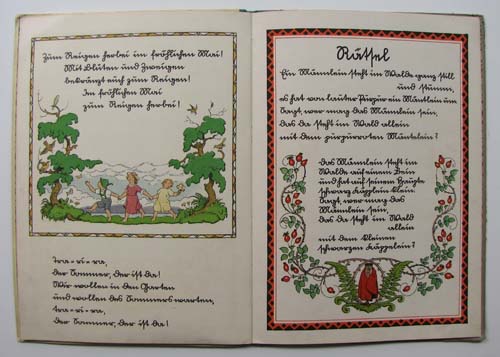 Zum Reigen herbei im fröhlichen Mai!
Mit Blüten und Zweigen
bekränzt euch zum Reigen!
Im fröhlichen Mai
zum Reigen herbei!
tra-ri-ra,
der Sommer, der ist da!
Wir wollen in den Garten
und wollen des Sommers warten,
tra-ri-ra,
der Sommer, der ist da!
Rätsel
Ein Männlein steht im Walde ganz still
und stumm,
es hat von lauter Purpur ein Mäntlein um
Sagt, wer mag das Männlein sein,
das da steht im Wald allein
mit dem purpurroten Mäntelein?
Das Männlein steht im
Walde auf einem Bein
und hat auf seinem Haupte
schwarz Käpplein klein.
Sagt, wer mag das
Männlein sein,
das da steht im Wald
allein
mit dem kleinen
schwarzen Käppelein?